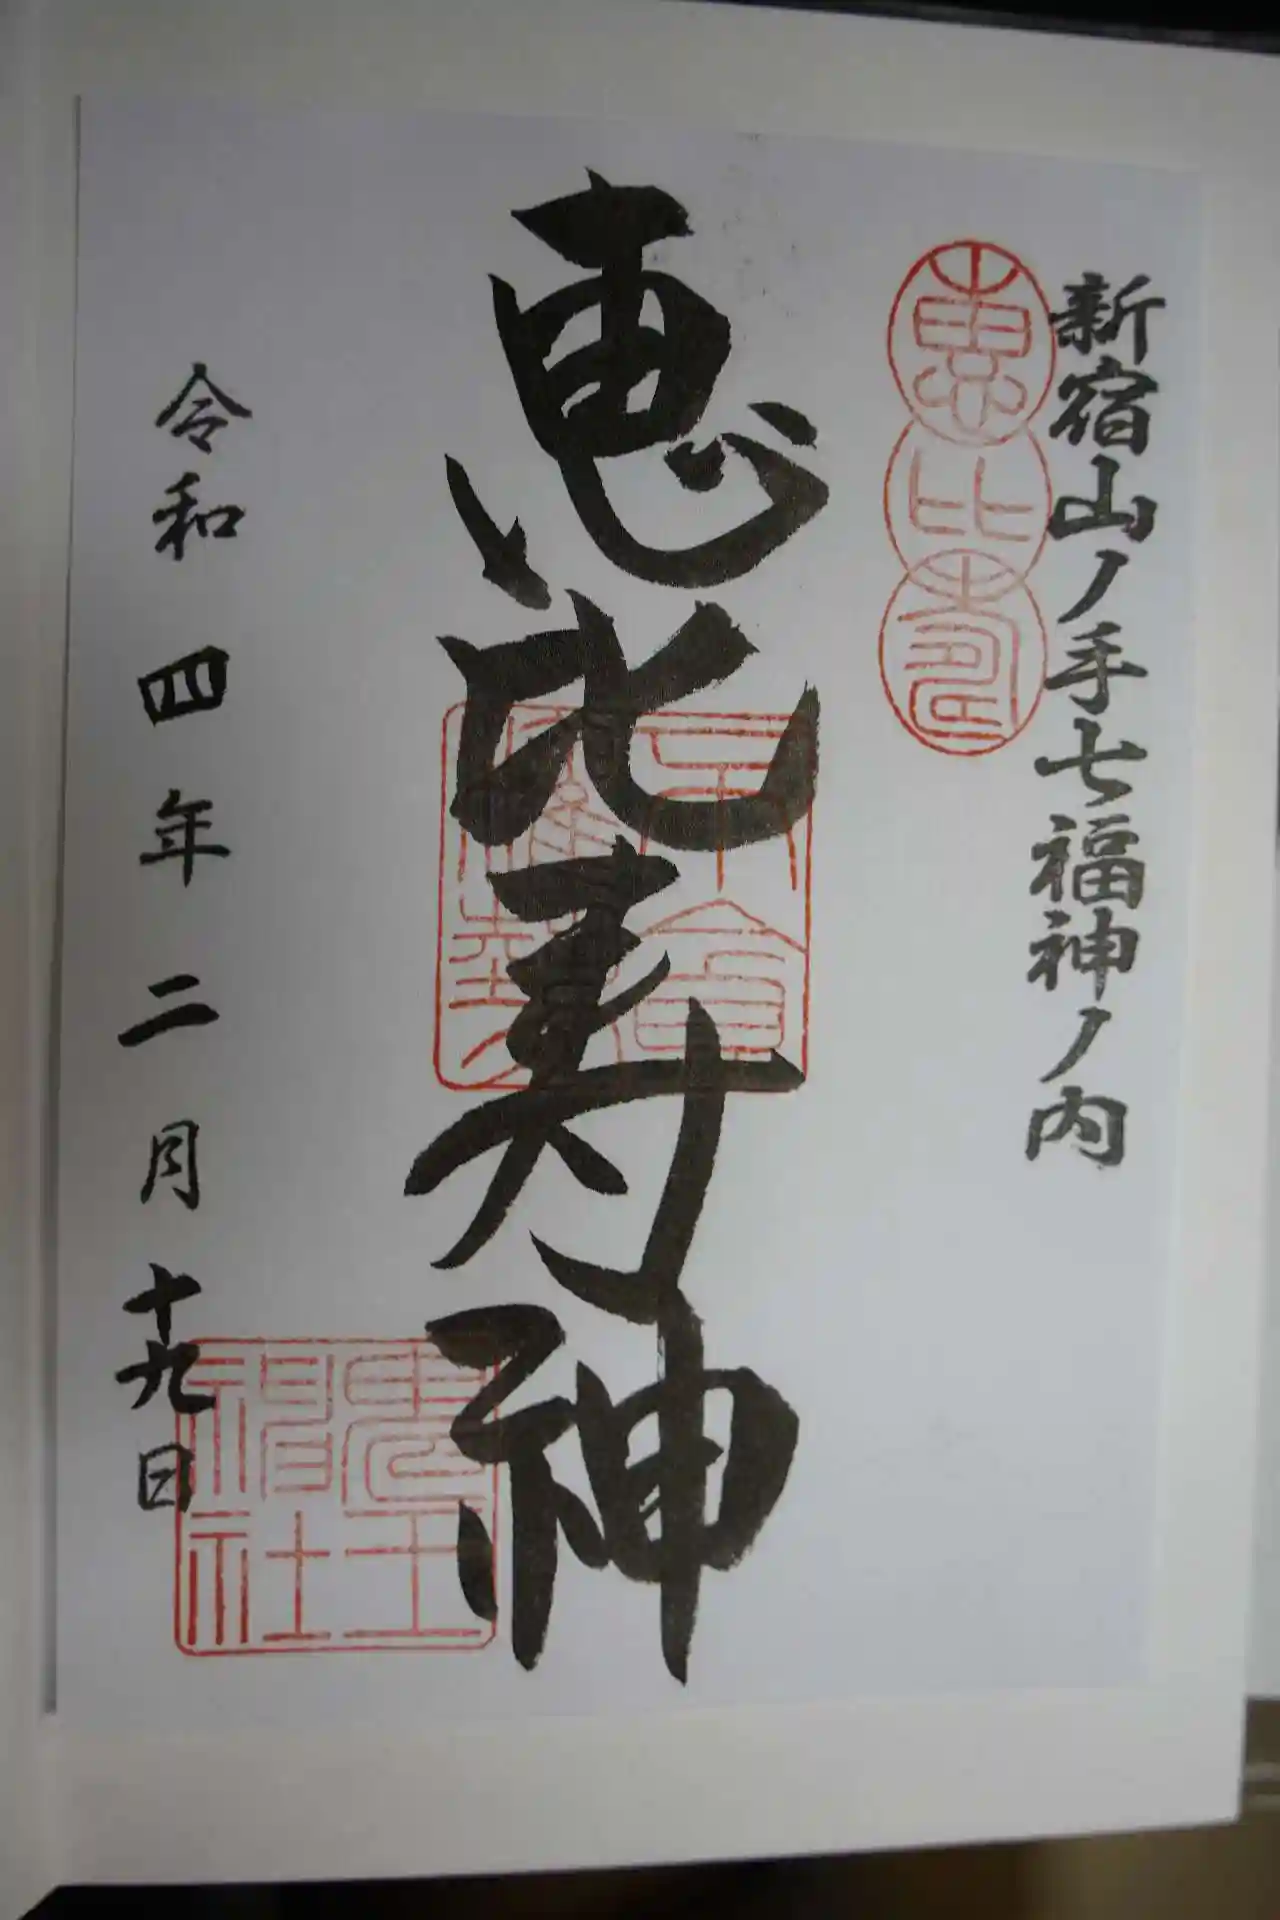 新宿山ノ手七福神ノ内
恵比寿
恵比寿神
令和四年二月十九日
稲荷鬼王
神社